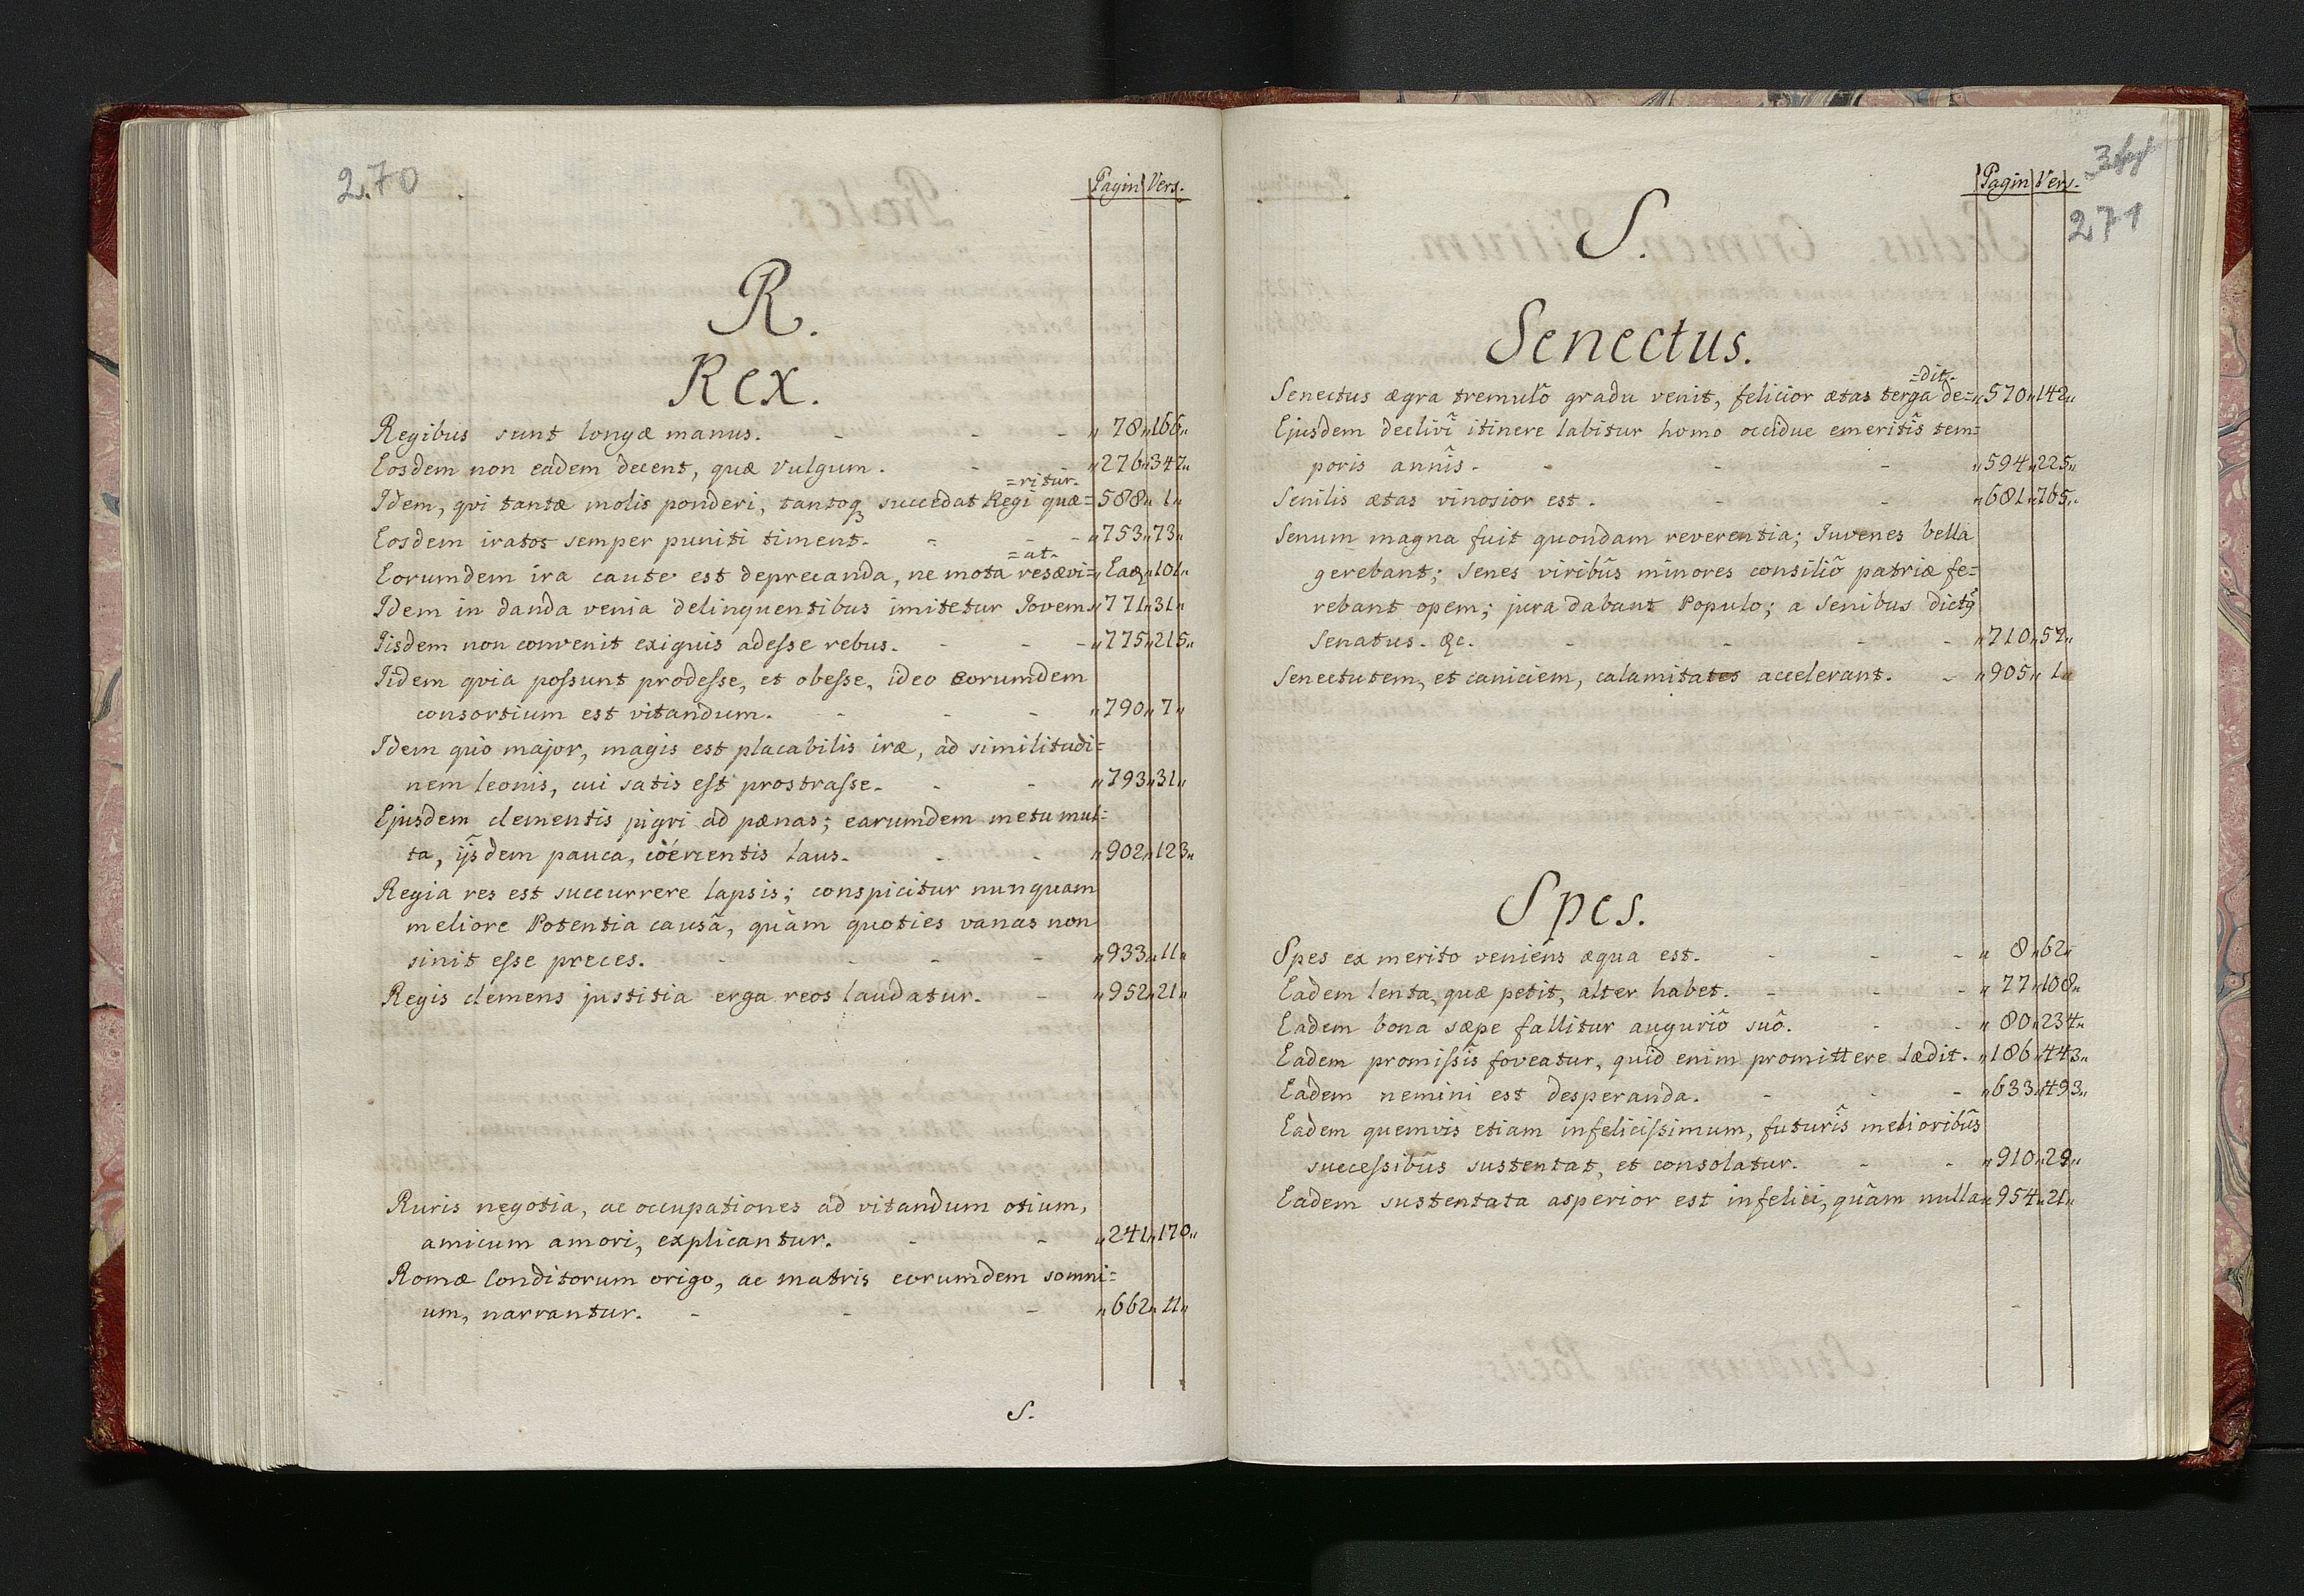 270
Pagin Vers.
R.
Rex.
Regibus sunt longæ manus. - - - „ 78 „ 166 „
Eosdem non eadem decent, quæ vulgum. - - „ 276 „ 347 „
=ritur.
Idem, qvi tantæ molis ponderi, tantoq succedat Regi quæ= 588 „ 1 „
Eosdem iratos semper puniti timent. - - - „ 753 „ 73 „
=at.
Eorumdem ira caute est deprecanda, ne mota resævi= „ Eaq „ 101 „
Idem in danda venia delinquentibus imitetur Jovem „ 771 „ 31 „
Iisdem non convenit exiguis adesse rebus. - - - „ 775 „ 215 „
Iidem qvia possunt prodesse, et obesse, ideo eorumdem
consortium est vitandum. - - - „ 790 „ 7 „
Idem quo major, magis est placabilis iræ, ad similitudi=
nem leonis, cui satis est prostrasse. - - „ 793 „ 31 „
Ejusdem clementis pigri ad pænas; earumdem metu mul=
ta, ijsdem pauca, coërcentis laus. - - „ 902 „ 123 „
Regia res est succurrere lapsis; conspicitur nunquam
meliore Potentia causâ, quàm quoties vanas non
sinit esse preces. - - - - „ 933 „ 11 „
Regis clemens justitia erga reos laudatur. - „ 952 „ 21 „
Ruris negotia, ac occupationes ad vitandum otium,
amicum amori, explicantur. - - „ 241 „ 170 „
Romæ Conditorum origo, ac matris eorumdem somni=
um, narrantur. - - - „ 662 „ 11 „
S.
Pagin Vers.
271
S.
Senectus.
=dit.
Senectus ægra tremulô gradu venit, felicior ætas terga de= „ 570 „ 142 „
Ejusdem declivî itinere labitur homo occidue emeritîs tem=
poris annîs. - - - „ 594 „ 225 „
Senilis ætas vinosior est. - - „ 681 „ 765 „
Senum magna fuit quondam reverentia; Juvenes bella
gerebant; Senes viribûs minores consiliô patriæ fe=
rebant opem; jura dabant Populo; a Senibus dictq
Senatus. &c. - - - - „ 710 „ 57 „
Senectutem, et caniciem, calamitates accelerant. - „ 905 „ 1 „
Spes.
Spes ex merito veniens æqua est. - - - „ 8 „ 62 „
Eadem lenta, quæ petit, alter habet. - - - „ 77 „ 108 „
Eadem bona sæpe fallitur auguriô suô. - - „ 80 „ 234 „
Eadem promissîs foveatur, quid enim promittere lædit. „ 186 „ 443 „
Eadem nemini est desperanda. - - - „ 633 „ 493 „
Eadem quemvis etiam infelicissimum, futurîs melioribûs
successibûs sustentat, et consolatur. - - „ 910 „ 29 „
Eadem sustentata asperior est infelici, quàm nulla „ 954 „ 21 „